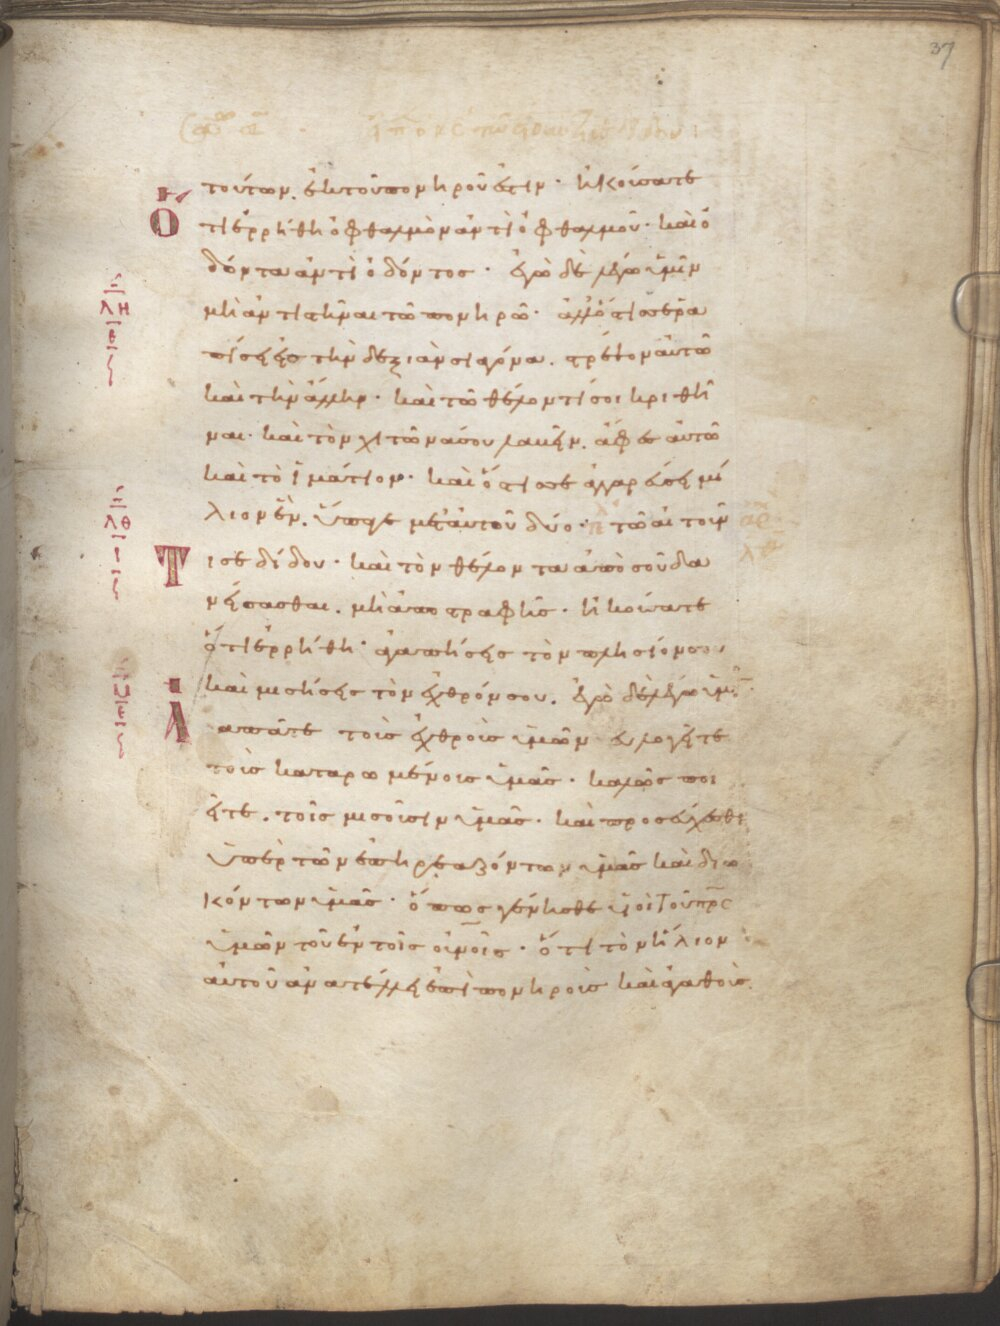 37
τούτων, ἐκ τοῦ πονηροῦ ἐστιν· ἠκούσατε
Ὅτι ἐρρήθη ὀφθαλμὸν ἀντὶ ὀφθαλμοῦ· καὶ ὀ
δόντα ἀντὶ ὀδόντος· ἐγὼ δὲ λέγω ὑμῖν
μὴ ἀντιστῆναι τῶ πονηρῶ· ἀλλ' ὅστις σε ρα
πίσει εἰς τὴν δεξιὰν σιαγόνα, στρέψον αὐτῶ
καὶ τὴν ἄλλην· καὶ τῶ θέλοντί σοι κριθῆ
ναι· καὶ τὸν χιτῶνά σου λαβεῖν, ἄφες αὐτῶ
καὶ τὸ ἱμάτιον· καὶ ὅστις σε ἀγγαρεύσει μί
λιον ἕν, ὕπαγε μετ' αὐτοῦ δύο· τῶ αἰτοῦν
Τι σε δίδου· καὶ τὸν θέλοντα ἀπὸ σοῦ δα
νείσασθαι, μὴ ἀποστραφῆς· ἠκούσατε
ὅτι ἐρρήθη· ἀγαπήσεις τὸν πλησίον σου
καὶ μισήσεις τὸν ἐχθρόν σου, ἐγὼ δὲ λέγω ὑμῖν·
Ἀγαπᾶτε τοὺς ἐχθροὺς ὑμῶν εὐλογεῖτε
τοὺς καταρωμένους ὑμᾶς· καλῶς ποι
εῖτε, τοῖς μισοῦσιν ὑμᾶς· καὶ προσεύχεσθε
ὑπὲρ τῶν ἐπηρεαζόντων ὑμᾶς καὶ διω
κόντων ὑμᾶς· ὅπως γένησθε υἱοὶ τοῦ πρς
ὑμῶν τοῦ ἐν τοῖς οὐνοῖς· ὅτι τὸν ἥλιον
αὐτοῦ ἀνατέλλει ἐπὶ πονηροὺς καὶ ἀγαθοὺς